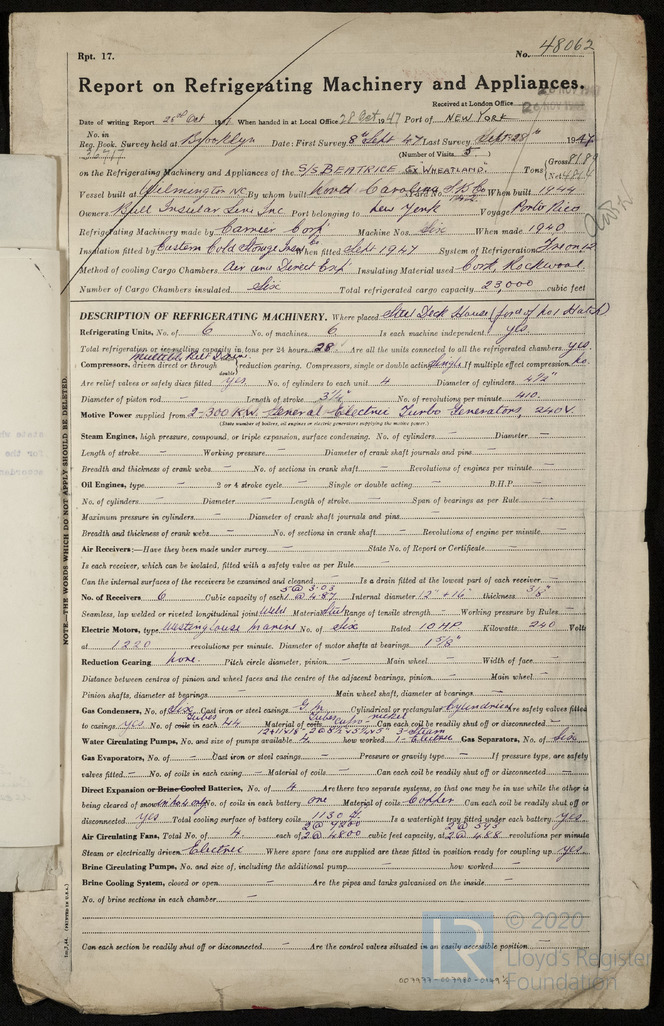 Rpt. 17.
No. 48062
Report on Refrigerating Machinery and Appliances.
Received at London Office
Date of writing Report 28th Oct 1947 When handed in at Local Office 28 Oct 1947 Port of NEW YORK
No. in Reg. Book. Survey held at Brooklyn Date: First Survey 8th Sept 47 Last Survey Sept 28th 1947
(Number of Visits 5)
on the Refrigerating Machinery and Appliances of the S/S BEATRICE Ex "WHEATLAND" Tons Gross Net
Vessel built at Wilmington NC By whom built North Carolina S.B. Co Yard No. 142 When built 1944
Owners Bull Insular Line Inc. Port belonging to New York Voyage Porto Rico
Refrigerating Machinery made by Carrier Corp Machine Nos. Six When made 1940
Insulation fitted by Eastern Cold Storage Insn Co When fitted Sept 1947 System of Refrigeration Freon 12
Method of cooling Cargo Chambers Air and Direct Exp. Insulating Material used Cork, Rockwool
Number of Cargo Chambers insulated Six Total refrigerated cargo capacity 23,000 cubic feet
DESCRIPTION OF REFRIGERATING MACHINERY. Where placed Steel Deck House (ford of No 1 Hatch)
Refrigerating Units, No. of 6 No. of machines 6 Is each machine independent yes
Total refrigeration or ice-making capacity in tons per 24 hours 28 Are all the units connected to all the refrigerated chambers yes.
multiple Belt Driven
Compressors, driven direct or through reduction gearing. Compressors, single or double acting Single If multiple effect compression No.
Are relief valves or safety discs fitted yes. No. of cylinders to each unit 4 Diameter of cylinders 4½"
Diameter of piston rod - Length of stroke 3¼" No. of revolutions per minute 410.
Motive Power supplied from 2-300 K.W. General Electric Turbo Generators, 240V.
(State number of boilers, oil engines or electric generators supplying the motive power.)
Steam Engines, high pressure, compound, or triple expansion, surface condensing. No. of cylinders - Diameter -
Length of stroke - Working pressure - Diameter of crank shaft journals and pins -
Breadth and thickness of crank webs - No. of sections in crank shaft - Revolutions of engines per minute -
Oil Engines, type - 2 or 4 stroke cycle - Single or double acting - B.H.P. -
No. of cylinders - Diameter - Length of stroke - Span of bearings as per Rule -
Maximum pressure in cylinders - Diameter of crank shaft journals and pins -
Breadth and thickness of crank webs - No. of sections in crank shaft - Revolutions of engine per minute -
Air Receivers:—Have they been made under survey - State No. of Report or Certificate -
Is each receiver, which can be isolated, fitted with a safety valve as per Rule -
Can the internal surfaces of the receivers be examined and cleaned - Is a drain fitted at the lowest part of each receiver -
No. of Receivers 6 Cubic capacity of each 5 @ 3.03 1 @ 4.87 Internal diameter 12" + 16" thickness 3/8"
Seamless, lap welded or riveted longitudinal joint Weld Material Steel Range of tensile strength - Working pressure by Rules -
Electric Motors, type Westinghouse Marine No. of Six Rated 10 HP Kilowatts 240 Volts
at 1220 revolutions per minute. Diameter of motor shafts at bearings 1 5/8"
Reduction Gearing None. Pitch circle diameter, pinion - Main wheel - Width of face -
Distance between centres of pinion and wheel faces and the centre of the adjacent bearings, pinion - Main wheel -
Pinion shafts, diameter at bearings - Main wheel shaft, diameter at bearings -
Gas Condensers, No. of Six Cast iron or steel casings G.M. Cylindrical or rectangular Cylindrical Are safety valves fitted
to casings yes No. of coils in each Tubes 44 Material of coils Tubes Cupro nickel Can each coil be readily shut off or disconnected -
Water Circulating Pumps, No. and size of pumps available 4 how worked 3-Steam 1-Electric Gas Separators, No. of Six
Gas Evaporators, No. of - Cast iron or steel casings - Pressure or gravity type - If pressure type, are safety
valves fitted - No. of coils in each casing - Material of coils - Can each coil be readily shut off or disconnected -
Direct Expansion or Brine Cooled Batteries, No. of 4 Are there two separate systems, so that one may be in use while the other is
being cleared of snow No. of coils in each battery one Material of coils Copper Can each coil be readily shut off or
disconnected yes Total cooling surface of battery coils 1130 ft. Is a watertight tray fitted under each battery yes.
Air Circulating Fans, Total No. of 4. each of 2 @ 4800 cubic feet capacity, at 2 @ 488 revolutions per minute
Steam or electrically driven Electric Where spare fans are supplied are these fitted in position ready for coupling up yes.
Brine Circulating Pumps, No. and size of, including the additional pump - how worked -
Brine Cooling System, closed or open - Are the pipes and tanks galvanised on the inside -
No. of brine sections in each chamber -
Can each section be readily shut off or disconnected - Are the control valves situated in an easily accessible position -
NOTE.—THE WORDS WHICH DO NOT APPLY SHOULD BE DELETED.
(PRINTED IN U.S.A.)
© 2020
Lloyd's Register
Foundation
LR